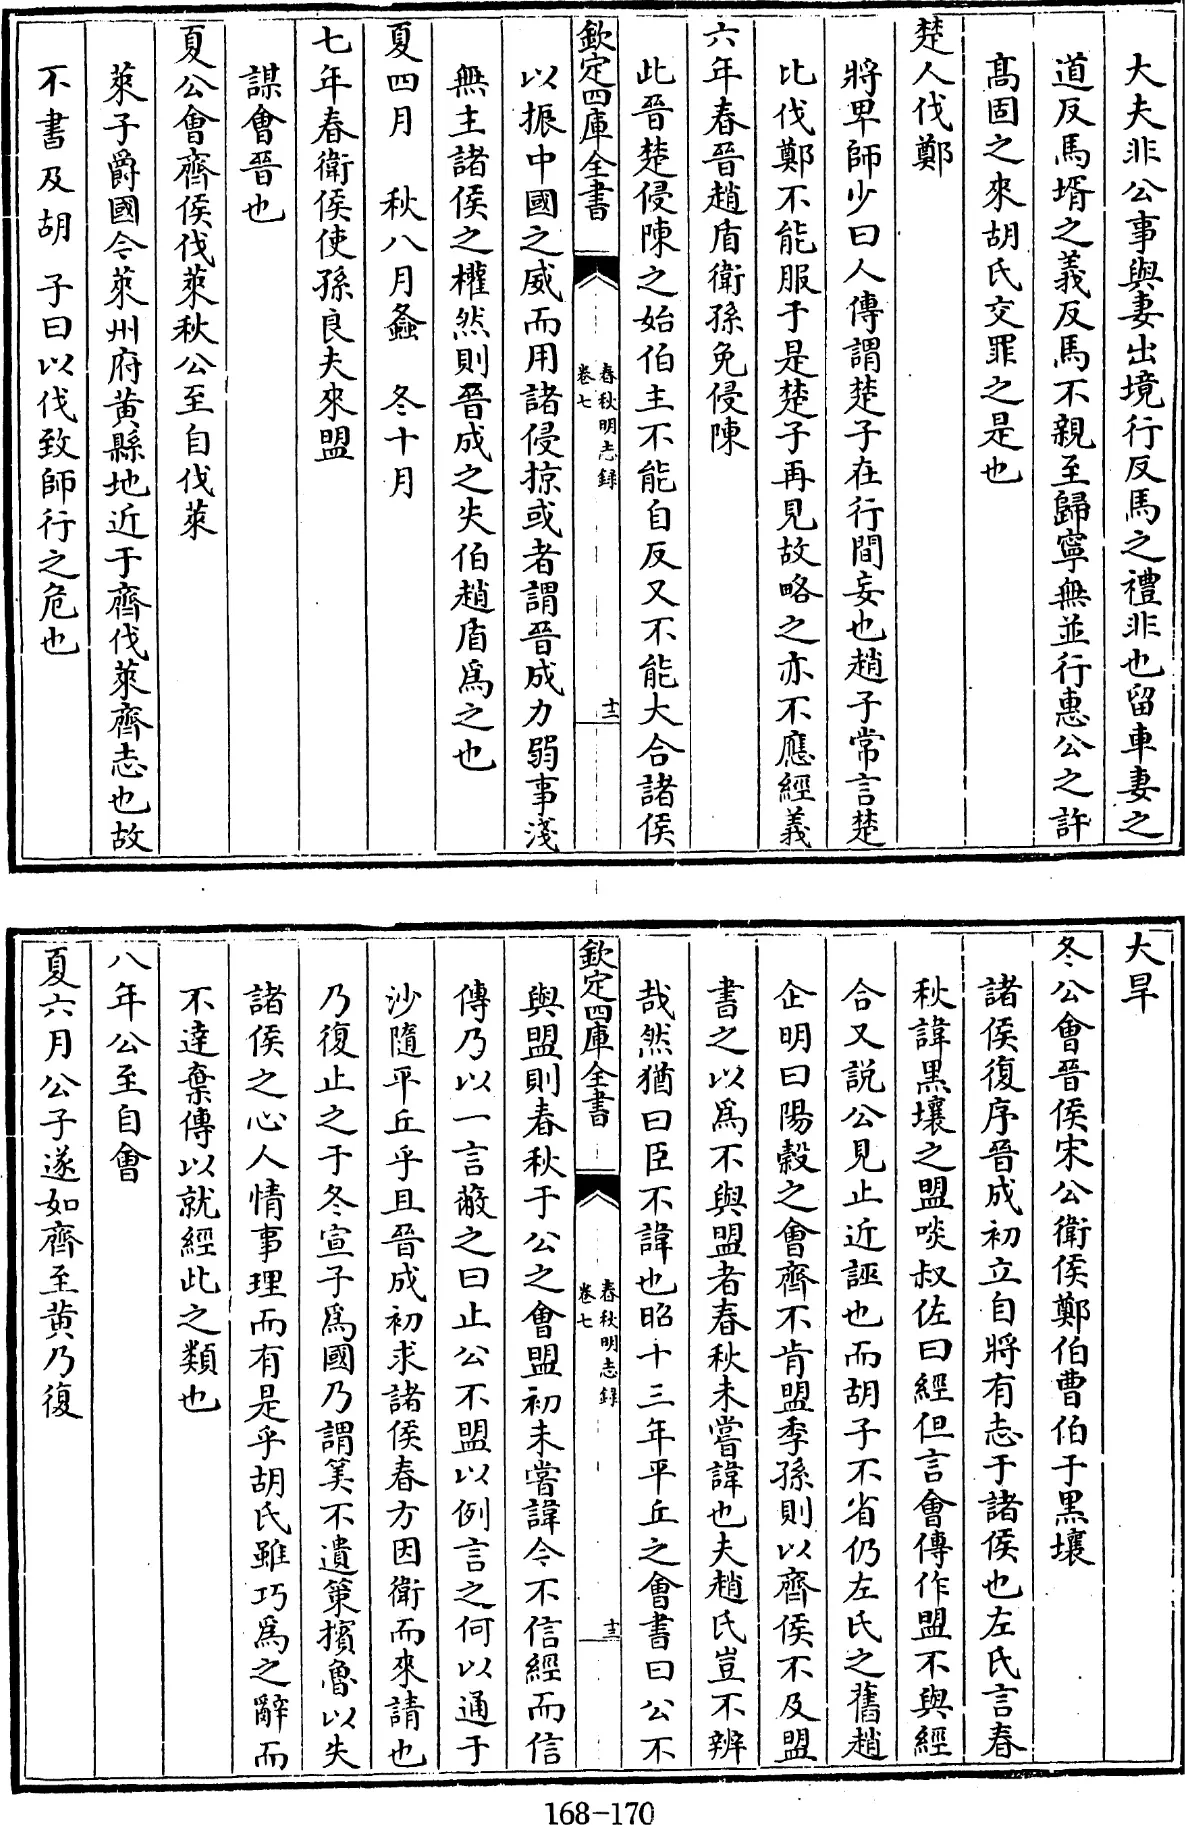 大夫非公事與妻出境行反馬之禮非也留車妻之
道反馬壻之義反馬不親至歸寧無並行惠公之許
髙固之來胡氏交罪之是也
楚人伐鄭
將卑師少曰人傳謂楚子在行間妄也趙子常言楚
比伐鄭不能服于是楚子再見故略之亦不應經義
六年春晉趙盾衛孫免侵陳
此晉楚侵陳之始伯主不能自反又不能大合諸侯
欽定四庫全書
春秋明志録
卷七
十二
以振中國之威而用諸侵掠或者謂晉成力弱事淺
無主諸侯之權然則晉成之失伯趙盾為之也
夏四月 秋八月螽 冬十月
七年春衛侯使孫良夫來盟
謀會晉也
夏公會齊侯伐萊秋公至自伐萊
萊子爵國今萊州府黄縣地近于齊伐萊齊志也故
不書及胡 子曰以伐致師行之危也
大旱
冬公會晉侯宋公衛侯鄭伯曹伯于黒壤
諸侯復序晉成初立自將有志于諸侯也左氏言春
秋諱黒壤之盟啖叔佐曰經但言會傳作盟不與經
合又説公見止近誣也而胡子不省仍左氏之舊趙
企明曰陽穀之會齊不肯盟季孫則以齊侯不及盟
書之以為不與盟者春秋未嘗諱也夫趙氏豈不辨
哉然猶曰臣不諱也昭十三年平丘之會書曰公不
欽定四庫全書
春秋明志録
卷七
十三
與盟則春秋于公之會盟初未嘗諱今不信經而信
傳乃以一言蔽之曰止公不盟以例言之何以通于
沙隨平丘乎且晉成初求諸侯春方因衛而來請也
乃復止之于冬宣子為國乃謂筭不遺策擯魯以失
諸侯之心人情事理而有是乎胡氏雖巧為之辭而
不達棄傳以就經此之類也
八年公至自會
夏六月公子遂如齊至黄乃復
168-170